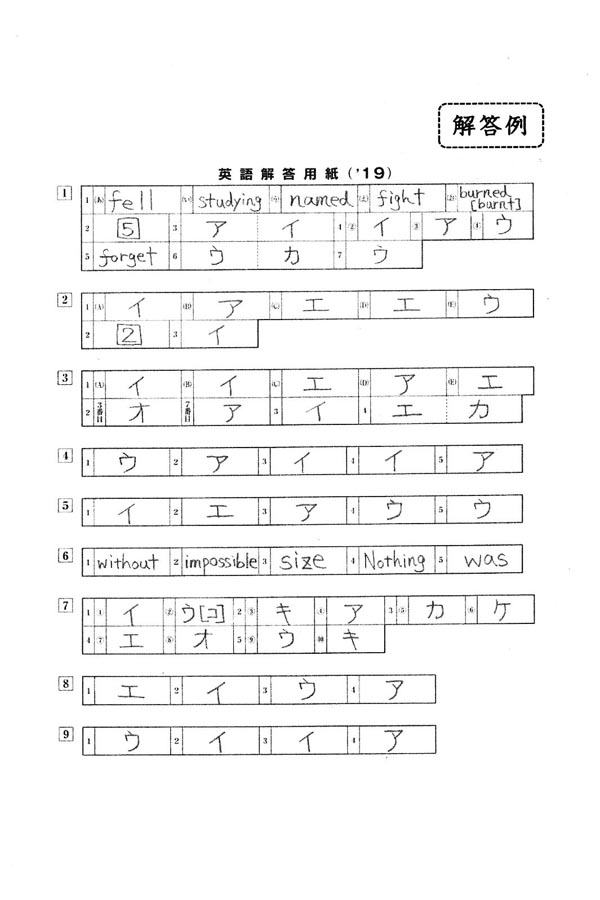 解答例
英語解答用紙('19)
1 1 (あ) fell (い) studying (う) named (え) fight (お) burned [burnt]
2 5 3 ア イ 4 ② イ ③ ア ④ ウ
5 forget 6 ウ カ 7 ウ
2 1 (A) イ (B) ア (C) エ (D) エ (E) ウ
2 2 3 イ
3 1 (A) イ (B) イ (C) エ (D) ア (E) エ
2 3番目 オ 7番目 ア 3 イ 4 エ カ
4 1 ウ 2 ア 3 イ 4 イ 5 ア
5 1 イ 2 エ 3 ア 4 ウ 5 ウ
6 1 without 2 impossible 3 size 4 Nothing 5 was
7 1 ① イ ② ウ[コ] 2 ③ キ ④ ア 3 ⑤ カ ⑥ ケ
4 ⑦ エ ⑧ オ 5 ⑨ ウ ⑩ キ
8 1 エ 2 イ 3 ウ 4 ア
9 1 ウ 2 イ 3 イ 4 ア